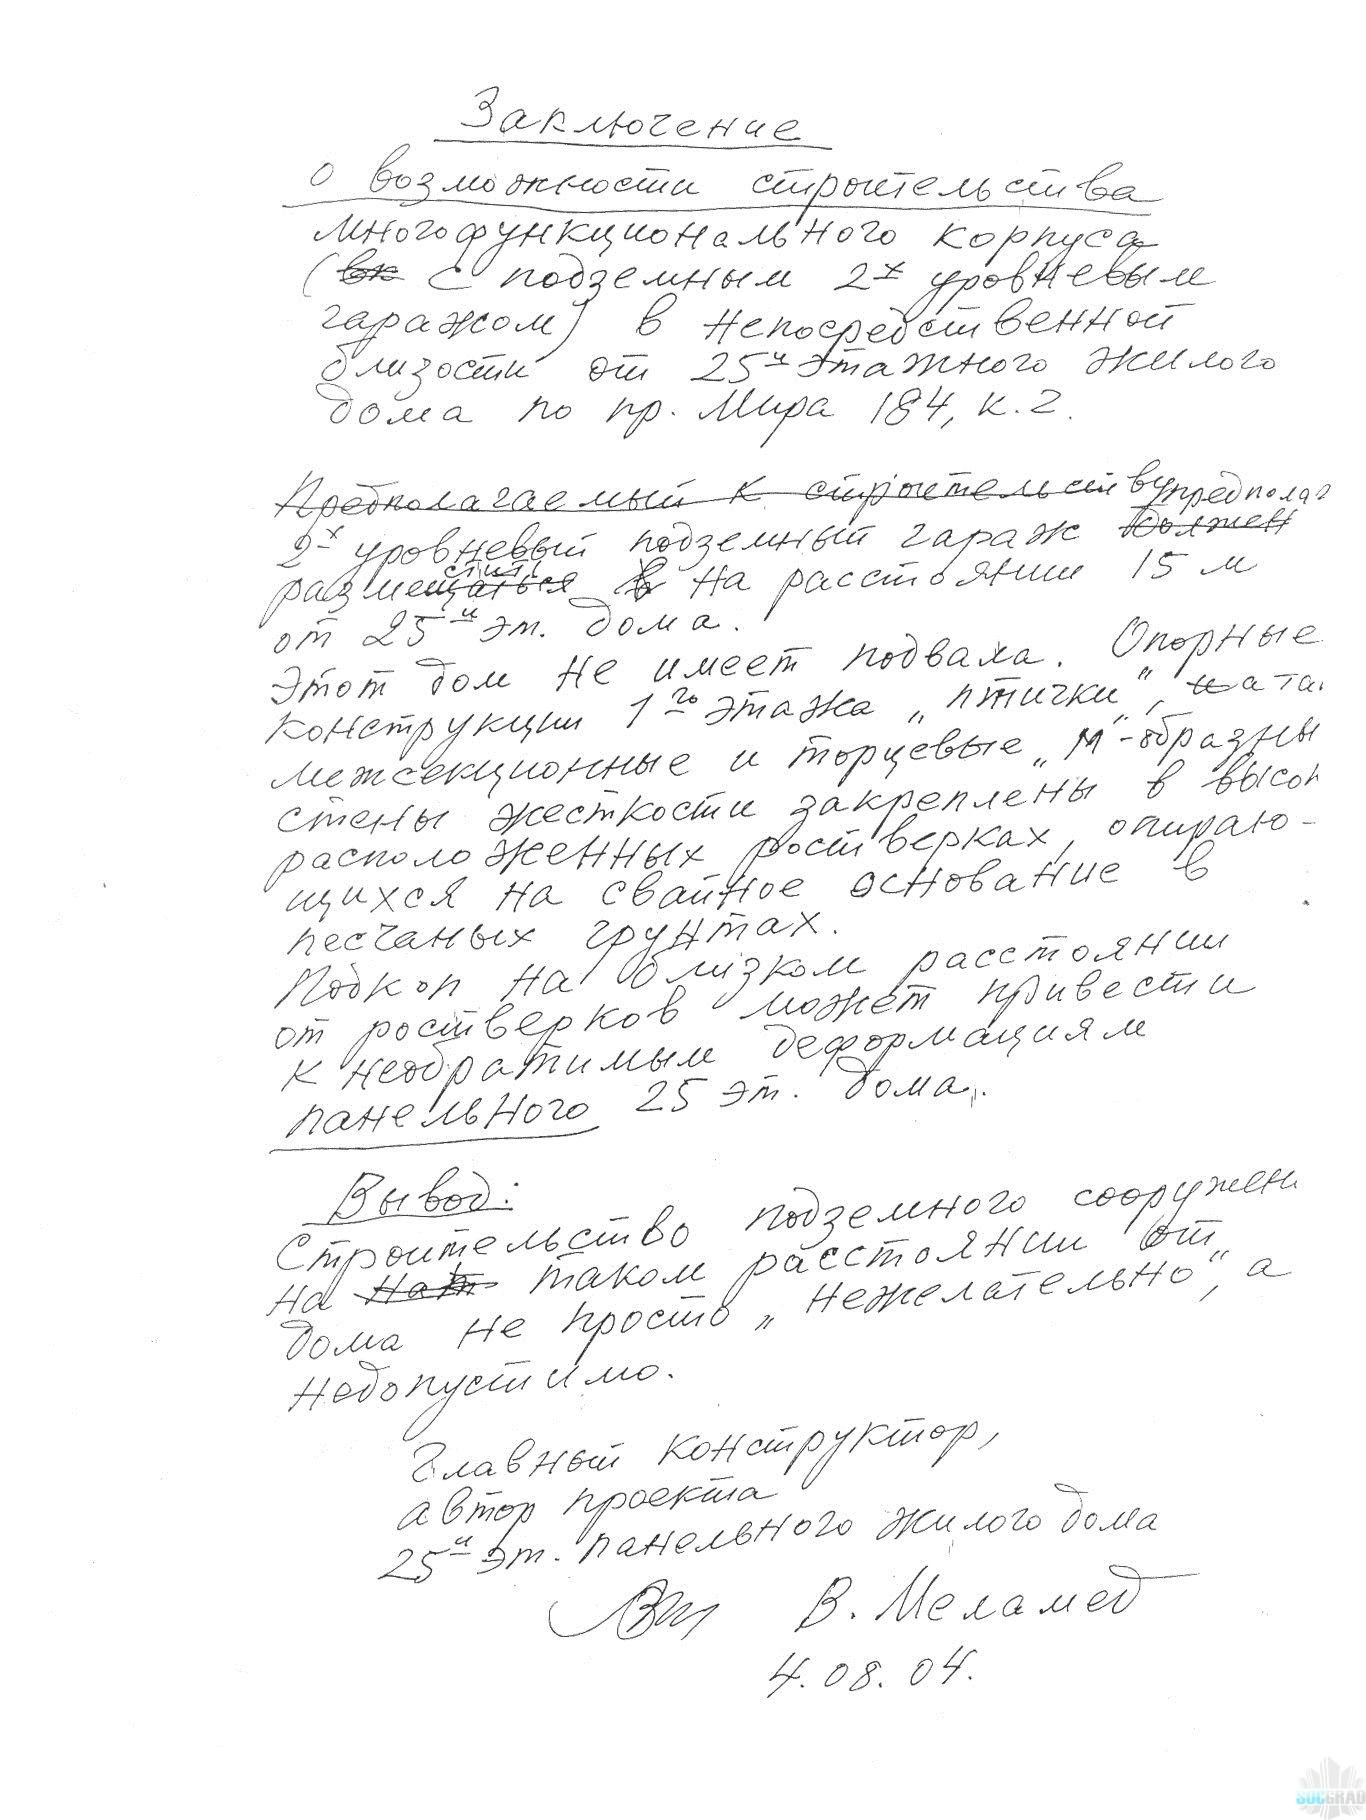 Заключение
о возможности строительства
многофункционального корпуса
(вк с подземным 2х уровневым
гаражом) в непосредственной
близости от 25и этажного жилого
дома по пр. Мира 184, к. 2.
Предполагаемый к строительству предполаг
2х уровневый подземный гараж должен
стить
размещаться в на расстоянии 15 м
от 25и эт. дома.
Этот дом не имеет подвала. Опорные
конструкции 1го этажа „птички", и а так
межсекционные и торцевые „М"-образны
стены жесткости закреплены в высок
расположенных ростверках, опираю-
щихся на свайное основание в
песчаных грунтах.
Подкоп на близком расстоянии
от ростверков может привести
к необратимым деформациям
панельного 25 эт. дома.
Вывод:
Строительство подземного сооружени
на таком расстоянии от
дома не просто „нежелательно", а
недопустимо.
Главный конструктор,
автор проекта
25и эт. панельного жилого дома
В. Меламед
4.08.04.
SOCGRAD